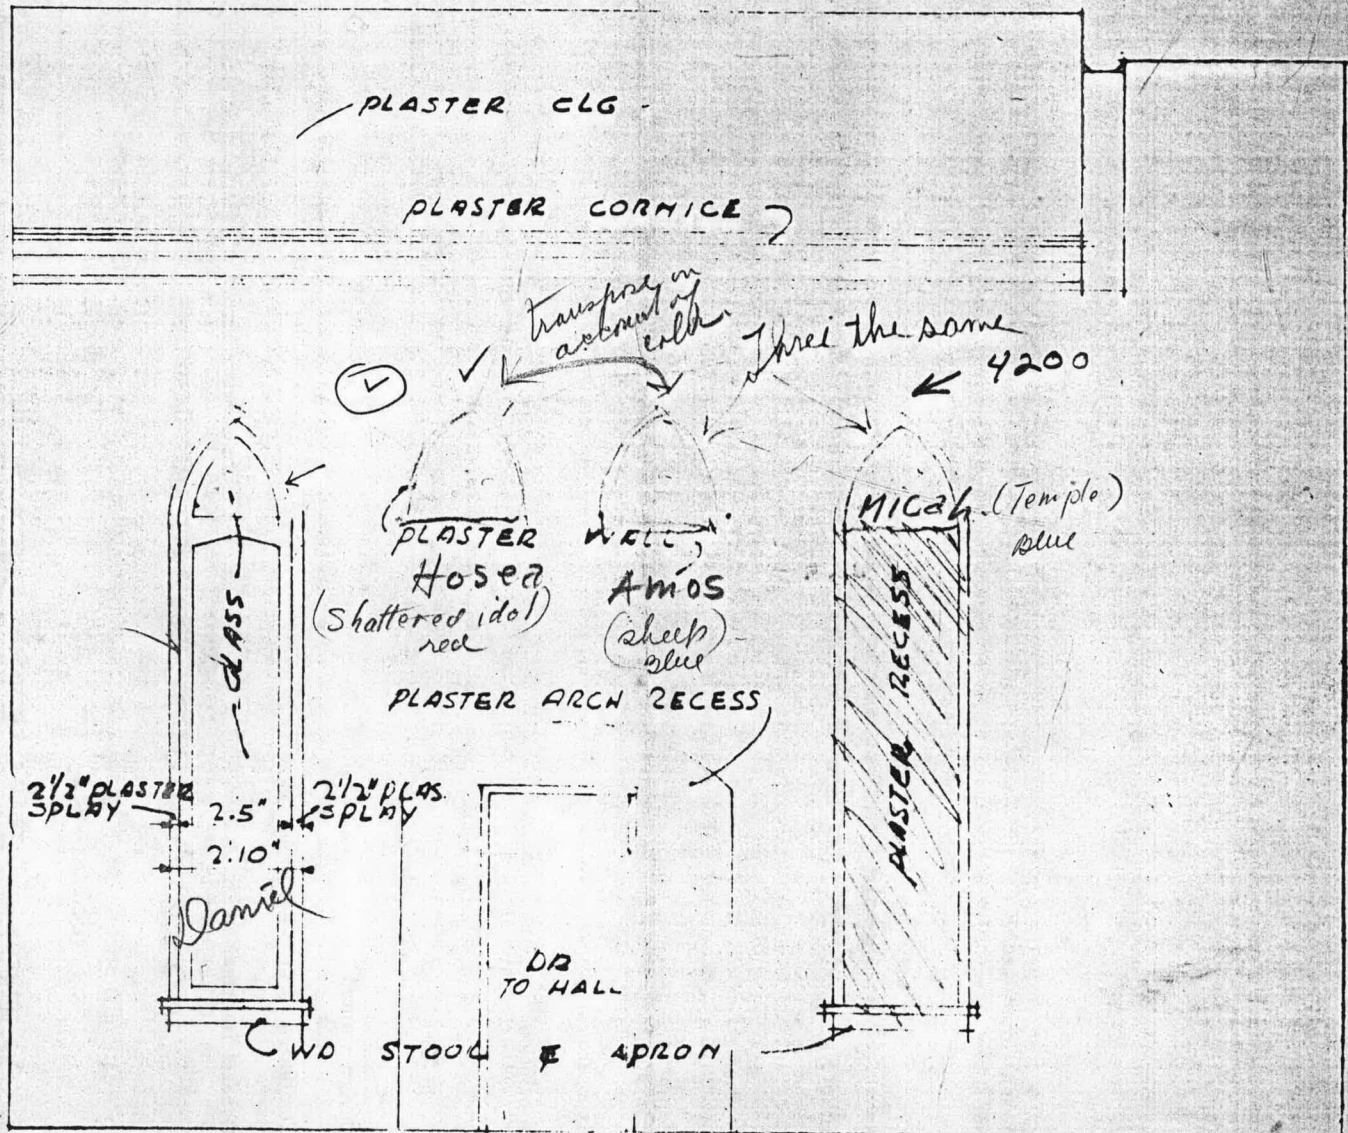 PLASTER CLG
PLASTER CORNICE
transpose on
account of
color.
Three the same
4200
PLASTER WALL,
Hosea
(Shattered idol)
red
Amos
(sheep)
blue
Micah (Temple)
blue
GLASS
PLASTER RECESS
PLASTER ARCH RECESS
2 1/2" PLASTER
SPLAY
2.5"
2 1/2" PLAS
SPLAY
2.10"
Daniel
DR
TO HALL
WD STOOL & APRON